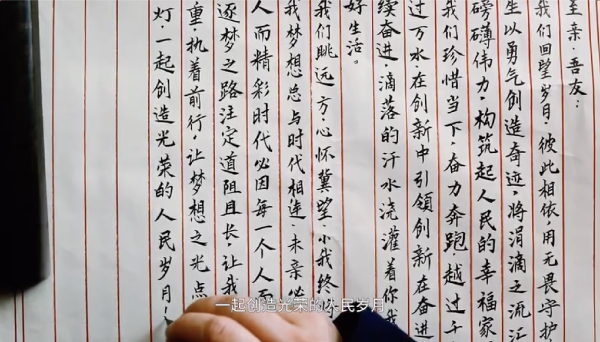 至亲·吾友：
我们回望岁月，彼此相依，用无畏守护
生以勇气创造奇迹，将涓滴之流汇
磅礴伟力，构筑起人民的幸福家
我们珍惜当下，奋力奔跑，越过千
过万水在创新中引领创新在奋进
续奋进，滴落的汗水浇灌着你我
好生活。
我们眺远方，心怀冀望，小我终
我梦想总与时代相连，未来必
人而精彩时代必因每一个人而
逐梦之路注定道阻且长，让我
重，执着前行，让梦想之光点
灯，一起创造光荣的人民岁月
一起创造光荣的人民岁月